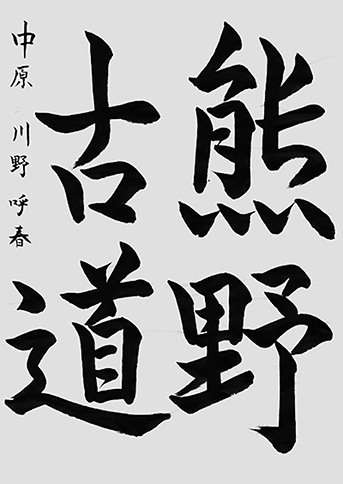 熊野
古道
中原 川野 呼春